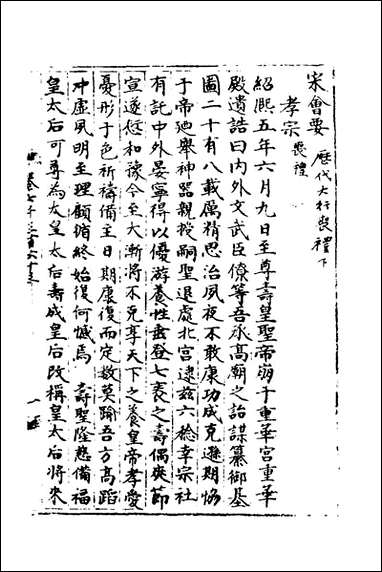 宋會要 歷代大行喪禮下
孝宗 喪禮
紹熙五年六月九日至尊壽皇聖帝崩于重華宮重華
殿遺誥曰內外文武臣僚等吾承高廟之詒謀纂御基
圖二十有八載厲精思治夙夜不敢康功成克遜期協
于帝廼舉神器親授嗣聖退處北宮逮茲六稔幸宗社
有託中外晏寧得以優游養性垂登七袠之壽偶爽節
宣遂愆和豫今至大漸將不克享天下之養皇帝孝愛
憂形于色祈禱備至日期康復而定數莫踰吾方高蹈
冲虛夙明至理顧循終始復何憾焉 壽聖隆慈備福
皇太后可尊為太皇太后壽成皇后改稱皇太后將來
卷七千三百六十三
一